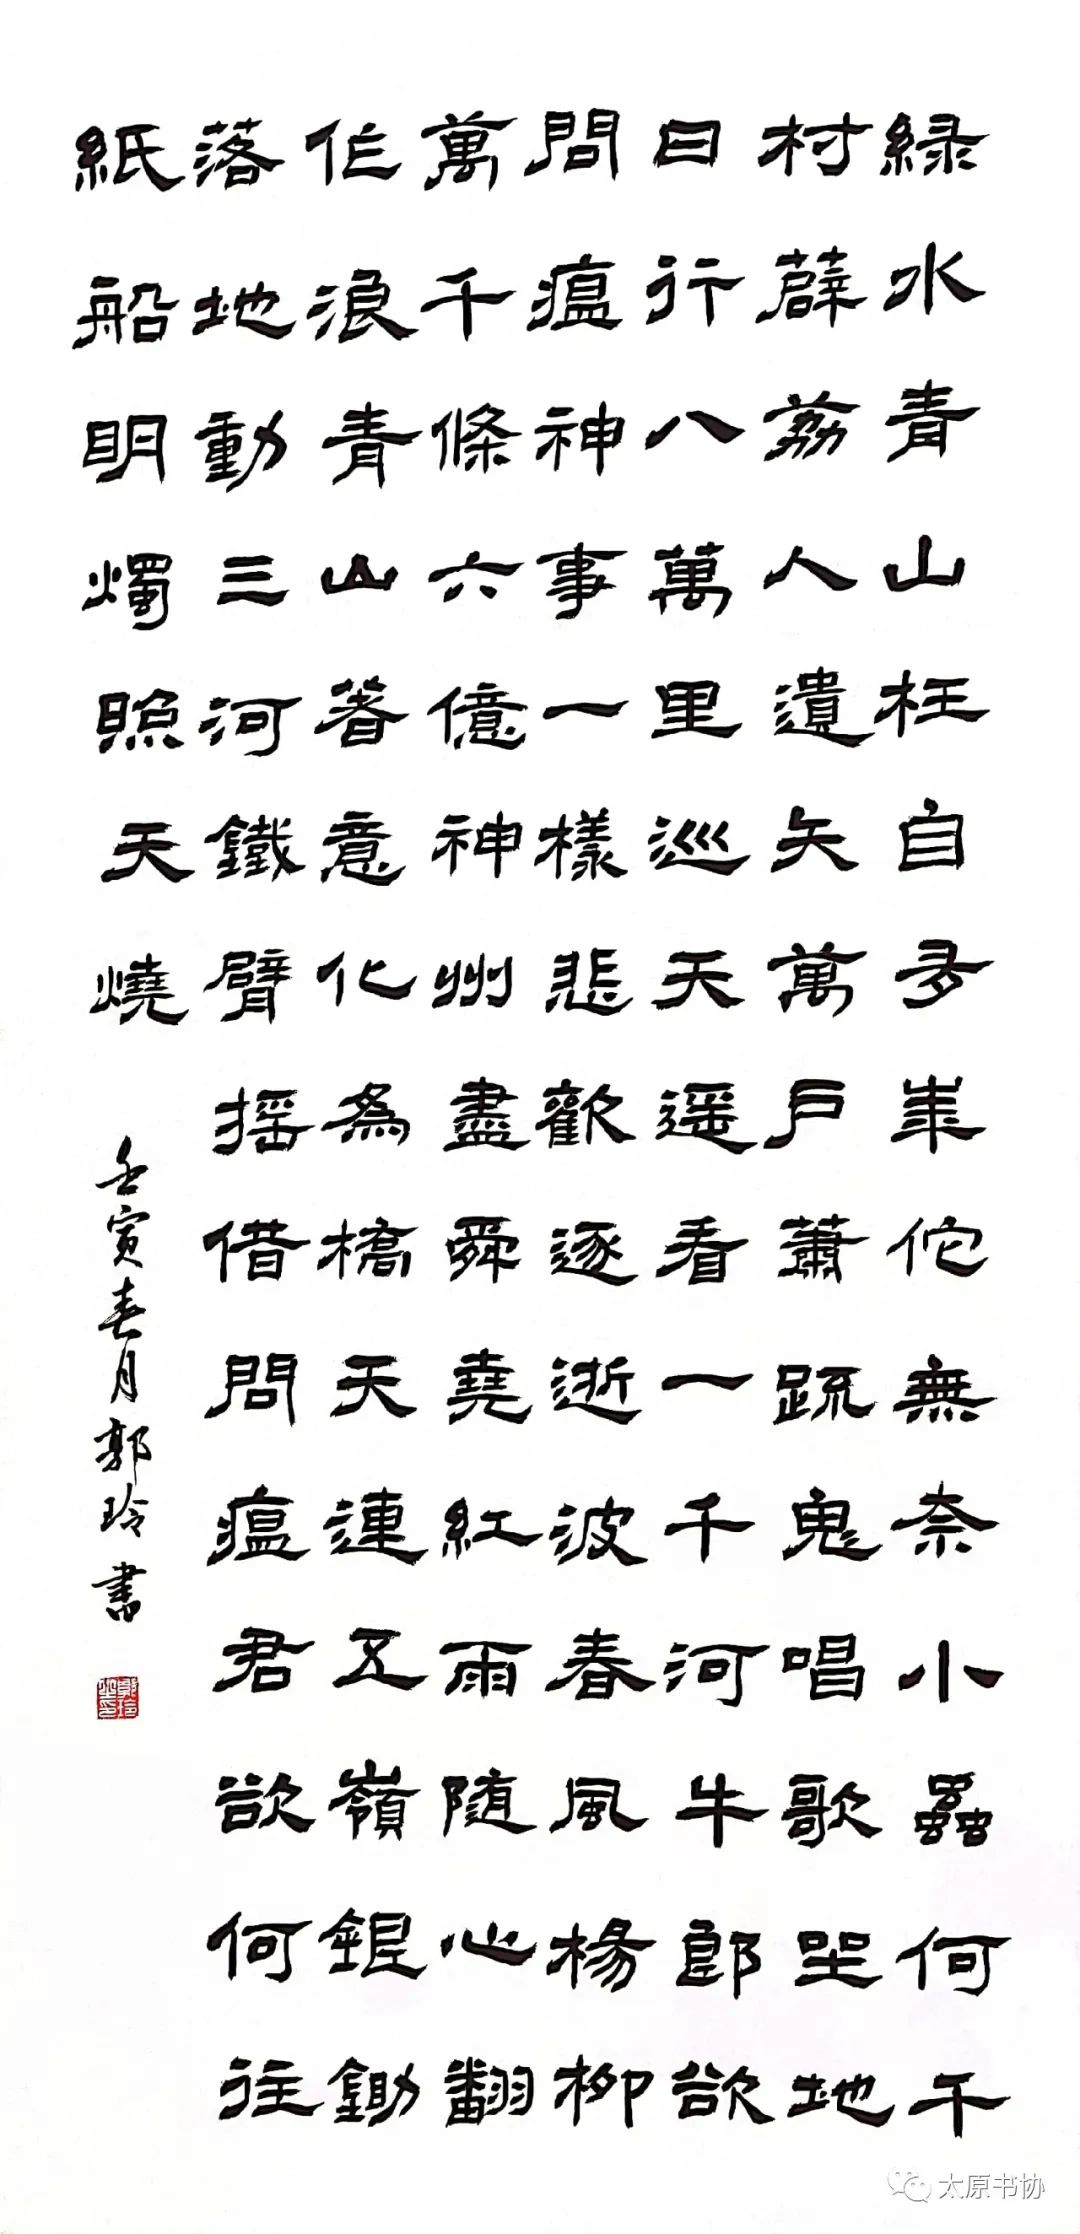 緑水青山枉自多華佗無奈小蟲何千
村薜荔人遺矢萬戶蕭疏鬼唱歌坐地
日行八萬里巡天遥看一千河牛郎欲
問瘟神事一樣悲歡逐逝波春風楊柳
萬千條六億神州盡舜堯紅雨随心翻
作浪青山着意化為橋天連五嶺銀鋤
落地動三河鐵臂摇借問瘟君欲何往
紙船明燭照天燒
壬寅春月郭玲書
太原书协